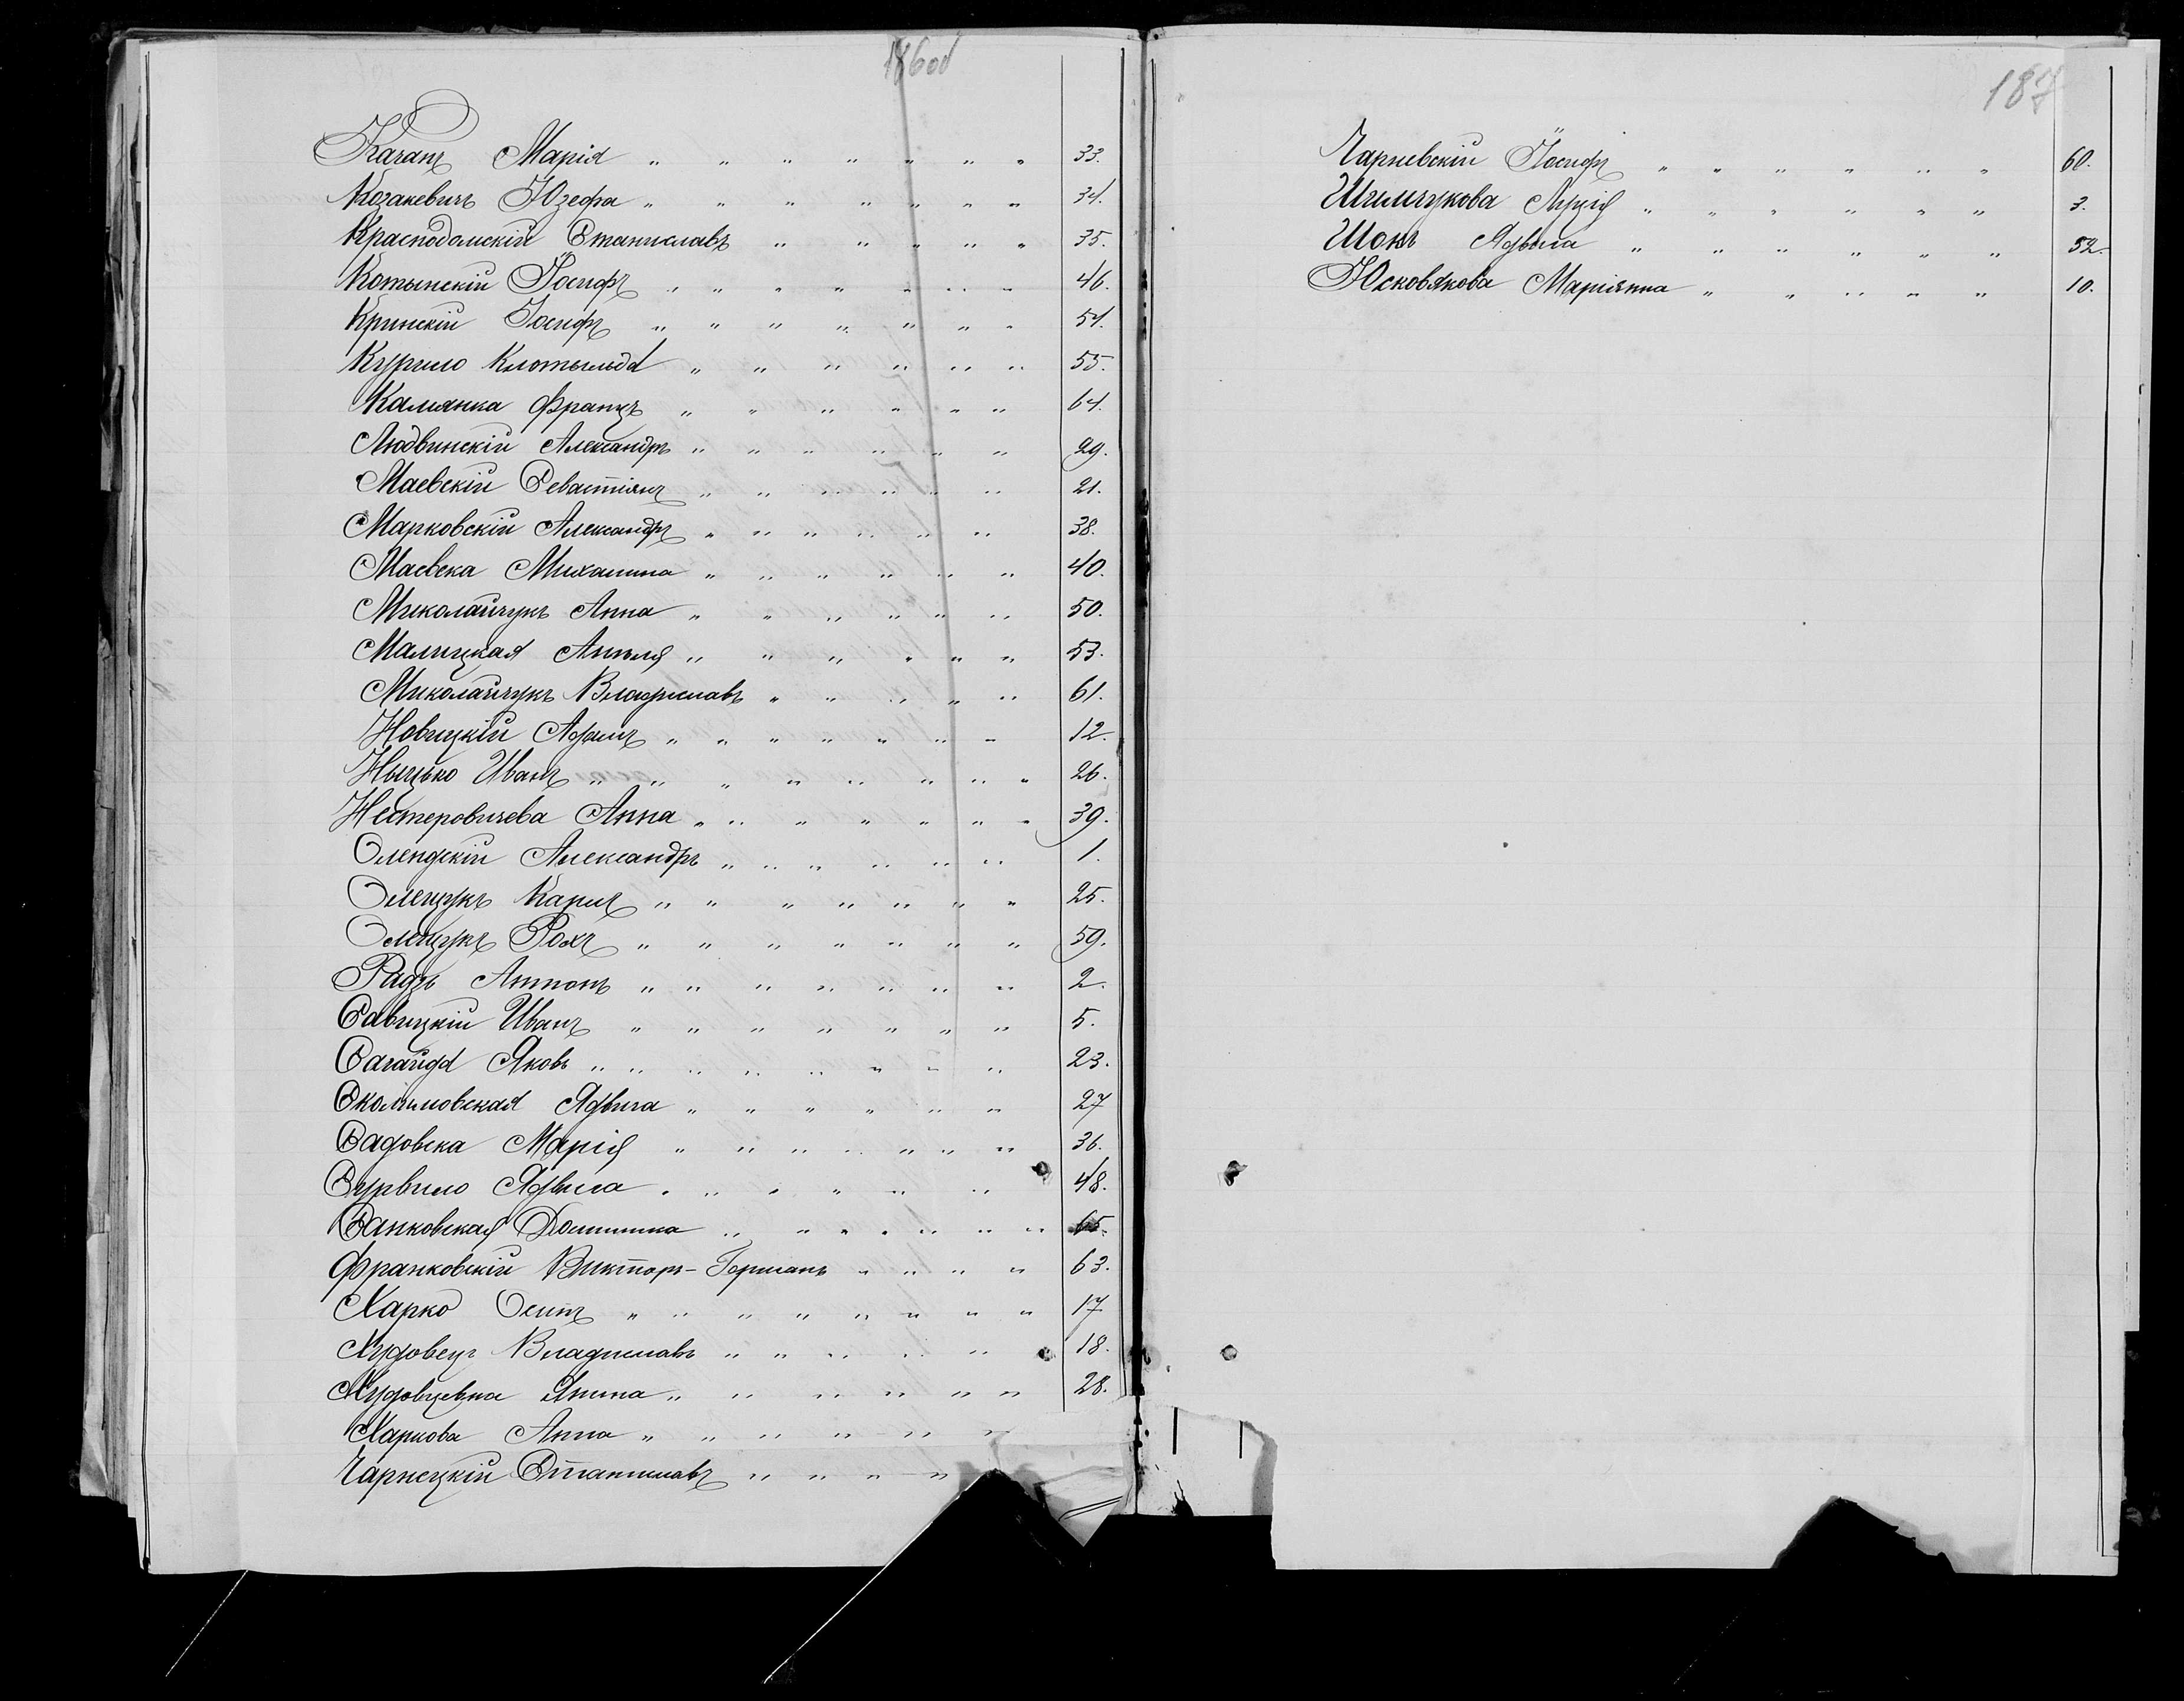 186об
Качанъ Марія " " " " " " " 33.
Козакевичъ Юзефа " " " " " " " 34.
Красnодомскій Станиславъ " " " " " 35.
Котынскій Іосифъ " " " " " " " 46.
Кринскій Іосифъ " " " " " " " 54.
Курило Клотыльда " " " " " " 55.
Калянка Францъ " " " " " " 64.
Людвинскій Александръ " " " " " " 29.
Маевскій Севастіянъ " " " " " " 21.
Марковскій Александръ " " " " " " 38.
Маевска Михалина " " " " " " 40.
Миколайчукъ Анна " " " " " " 50.
Малицкая Анеля " " " " " " 53.
Миколайчукъ Владиславъ " " " " " 61.
Новицкій Адамъ " " " " " " " 12.
Ныцько Иванъ " " " " " " " " 26.
Нестеровичева Анна " " " " " " " 39.
Олендскій Александръ " " " " " " 1.
Олещукъ Кариъ " " " " " " " 25.
Олещукъ Рохъ " " " " " " " 59.
Радзь Антонъ " " " " " " " 2.
Савицкій Иванъ " " " " " " " 5.
Сагайда Яковъ " " " " " " " " 23.
Сколимовская Ядвига " " " " " " 27
Садовска Марія " " " " " " " 36.
Сурвило Ядвига " " " " " " 48.
Санковская Доминика " " " " " " " 65.
Франковскій Викторъ-Германъ " " " " 63.
Харко Осипъ " " " " " " " " 17
Худовецъ Владиславъ " " " " " 18.
Худовцевна Янина " " " " " " 28.
Харкова Анна " " " " " "
Чарнецкій Станиславъ " " " "
187
Чарневскій Іосифъ " " " " " " 60.
Шчимчукова Луція " " " " " " 3.
Шокъ Ядвига " " " " " " 52.
Юсковякова Маріянна " " " " " 10.